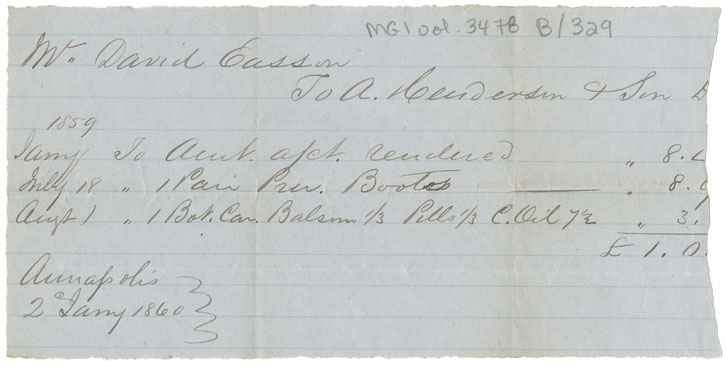 MG1 vol. 3478 B/329
Mr. David Easson
To A. Henderson & Son D
1859
Jany To Amt. a/ct. rendered " 8.
July 18 " 1 Pair Boots " 8.
Augt 1 " 1 Bot. Can. Balsam 1/3 Pills 1/3 C. Oil 7½ " 3.
£ 1. 0.
Annapolis
2 Jany 1860